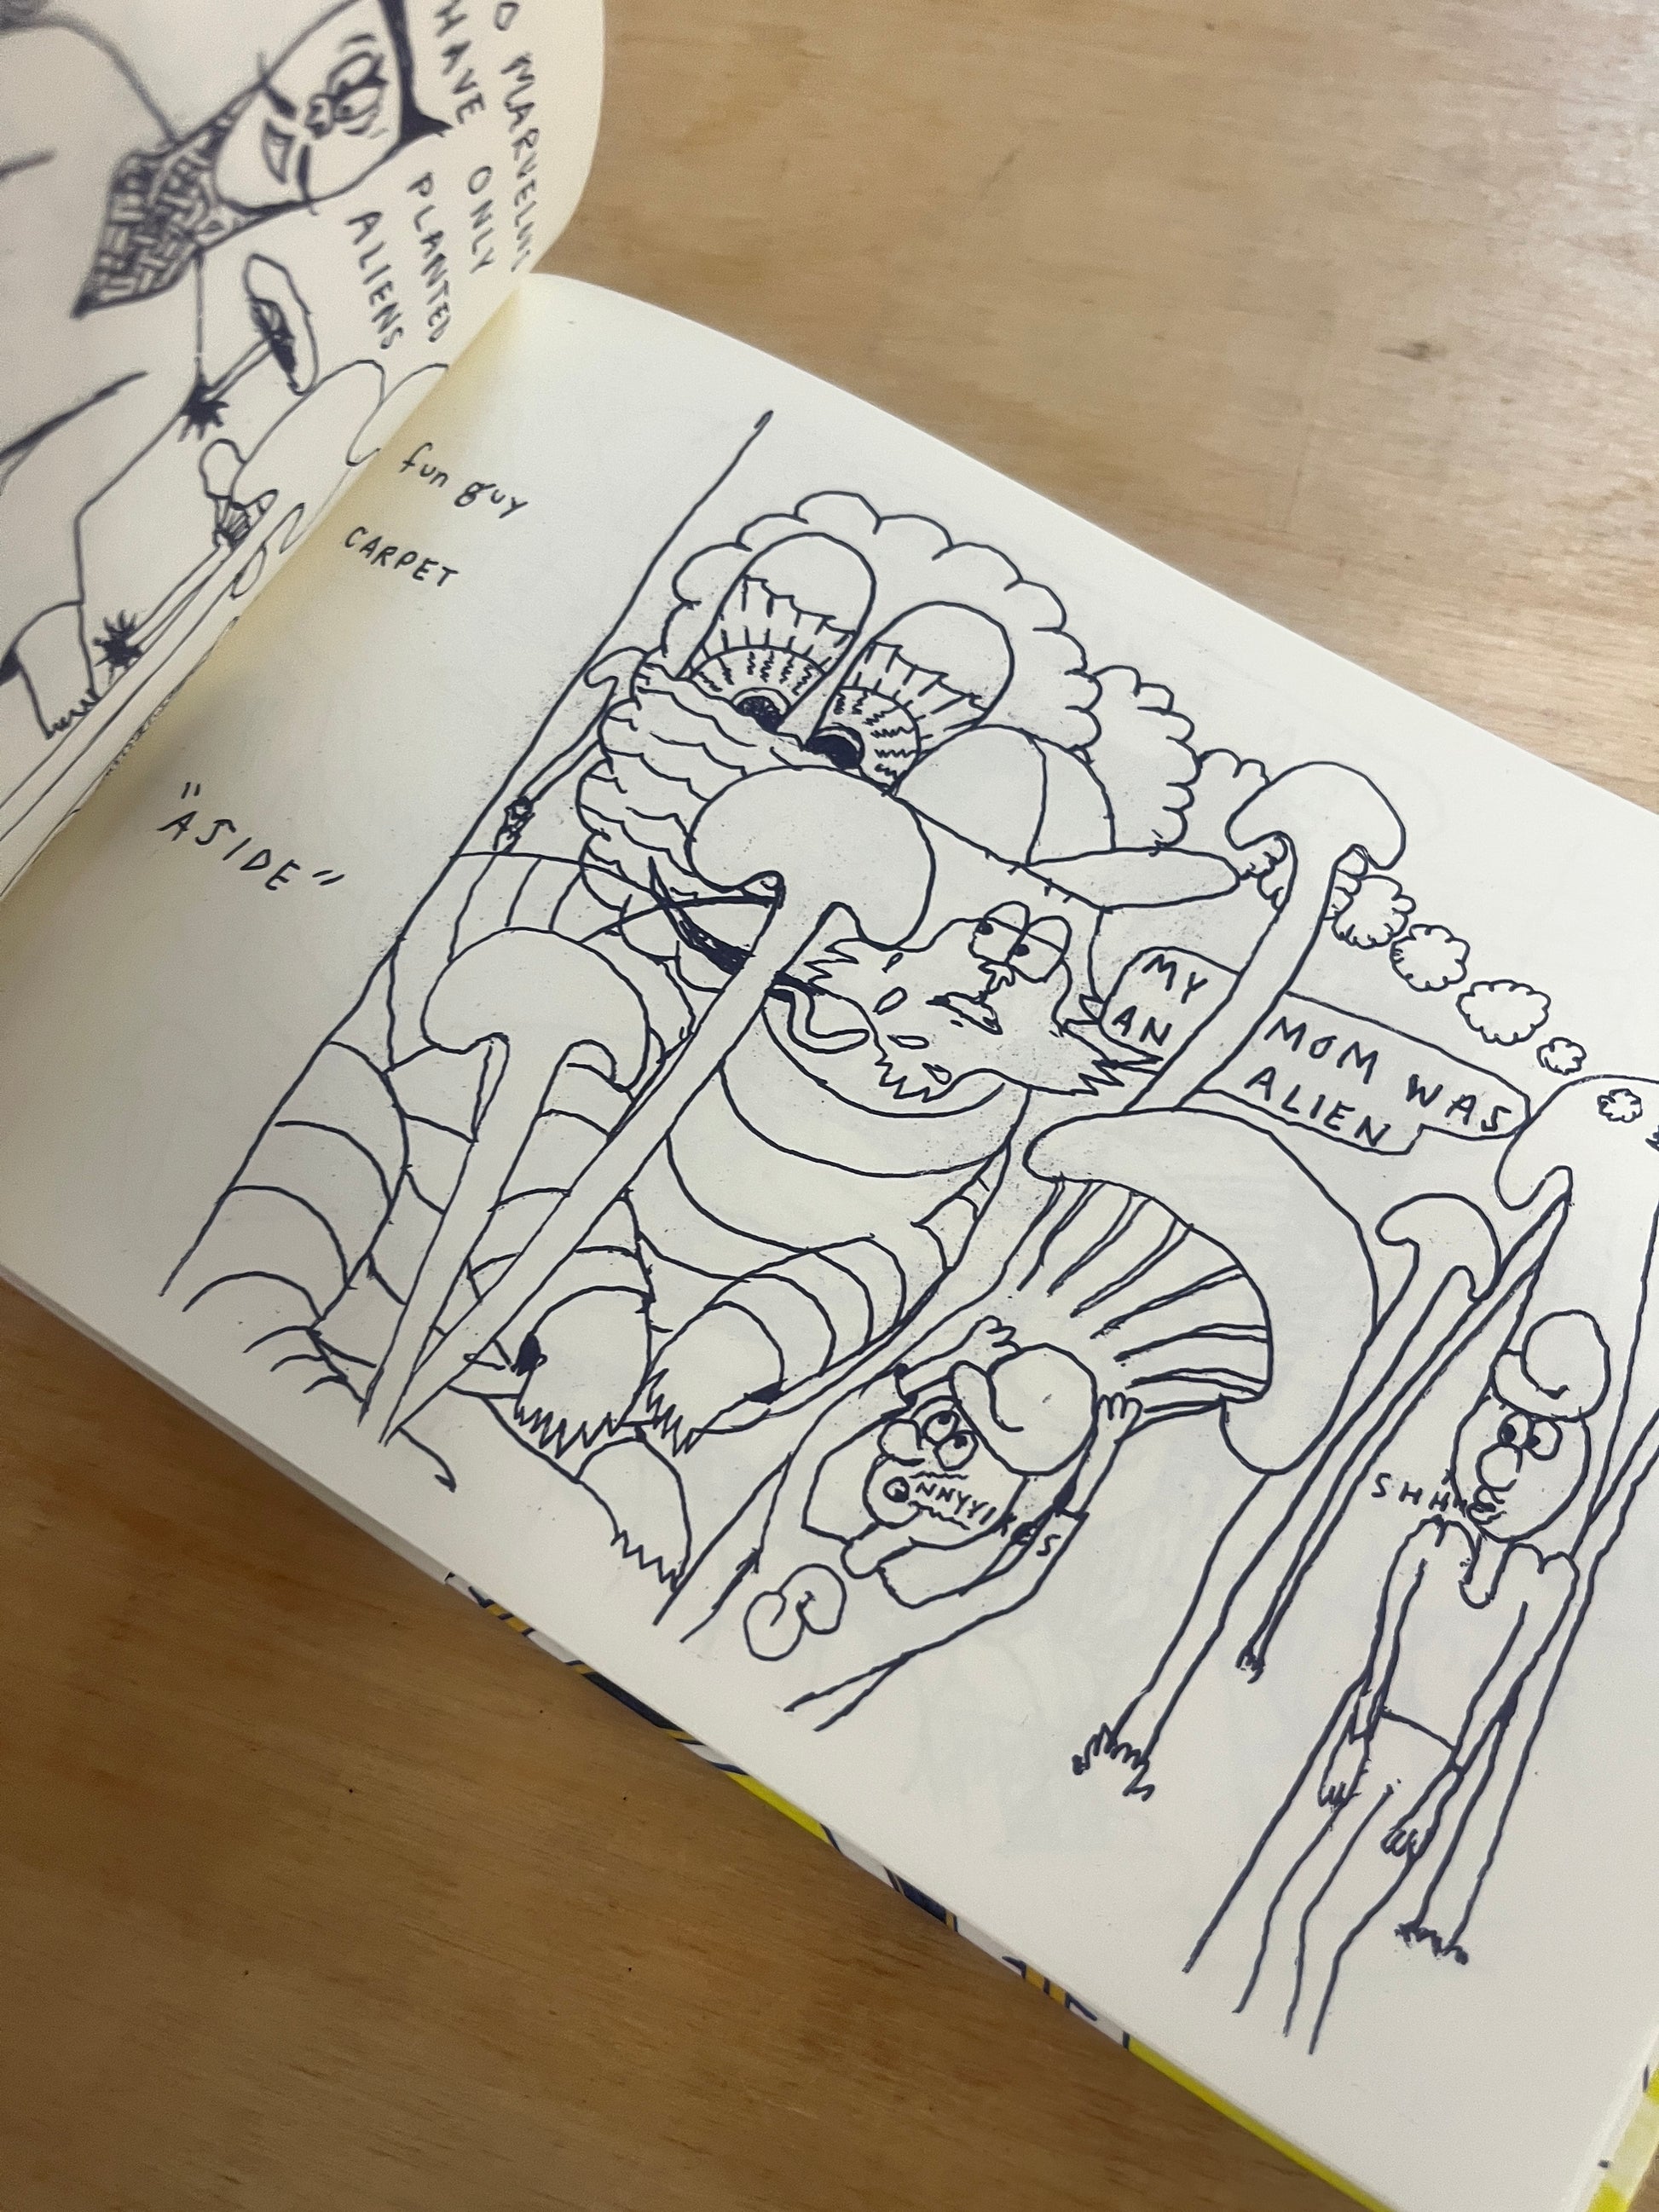 MARVELOUS
HAVE ONLY
PLANTED
ALIENS
fun guy
CARPET
"ASIDE"
MY MOM WAS
AN ALIEN
NNYYIKES
SHHH